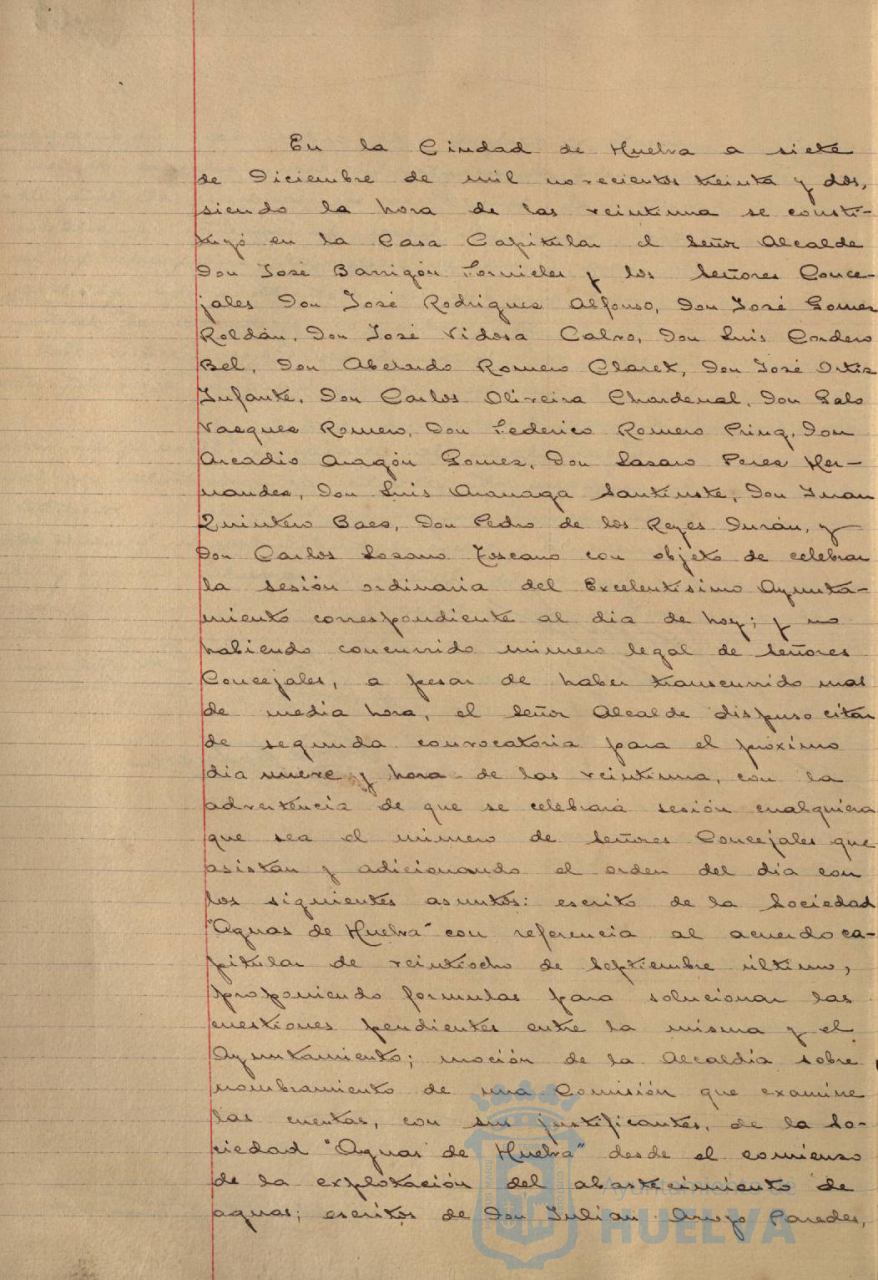 En la Ciudad de Huelva a siete
de Diciembre de mil novecientos treinta y dos,
siendo la hora de las veintiuna se consti-
tuyó en la Casa Capitular el Señor Alcalde
Don José Barrigón Fornieles y los Señores Conce-
jales Don José Rodriguez Alfonso, Don José Gomez
Roldán, Don José Vidosa Calvo, Don Luis Cordero
Bel, Don Abelardo Romero Claret, Don José Ortiz
Infante, Don Carlos Oliveira Chardenal, Don Galo
Vazquez Romero, Don Federico Romero Pring, Don
Arcadio Aragón Gomez, Don Lazaro Perez Her-
nandez, Don Luis Aranaga Santiuste, Don Juan
Quintero Baez, Don Pedro de los Reyes Durán, y
Don Carlos Lozano Toscano con objeto de celebrar
la sesión ordinaria del Excelentísimo Ayunta-
miento correspondiente al dia de hoy; y no
habiendo concurrido número legal de Señores
Concejales, a pesar de haber transcurrido mas
de media hora, el Señor Alcalde dispuso citar
de segunda convocatoria para el próximo
dia nueve y hora de las veintiuna, con la
advertencia de que se celebrará sesión cualquiera
que sea el número de Señores Concejales que
asistan y adicionando el orden del día con
los siguientes asuntos: escrito de la Sociedad
"Aguas de Huelva" con referencia al acuerdo ca-
pitular de veintiocho de Septiembre último,
proponiendo formulas para solucionar las
cuestiones pendientes entre la misma y el
Ayuntamiento; moción de la Alcaldía sobre
nombramiento de una Comisión que examine
las cuentas, con sus justificantes, de la So-
ciedad "Aguas de Huelva" desde el comienzo
de la explotación del abastecimiento de
aguas; escritos de Don Julián Arroyo Paredes,
Ayuntamiento de
HUELVA